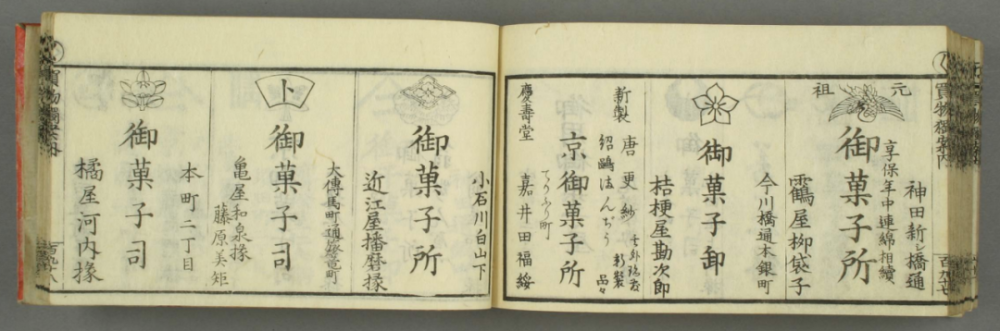 買物獨案内
百九十七
神田新シ橋通
元祖
享保年中連綿相續
御菓子所
靏屋柳袋子
今川橋通本銀町
御菓子卸
桔梗屋勘次郎
新製
唐更紗
紹鷗法んぢう
新製品々
京御菓子所
てりふり町
慶壽堂
嘉井田福綏
小石川白山下
御菓子所
近江屋播磨掾
大傳馬町通旅篭町
卜
御菓子司
亀屋和泉掾
藤原美矩
本町二丁目
御菓子司
橘屋河内掾